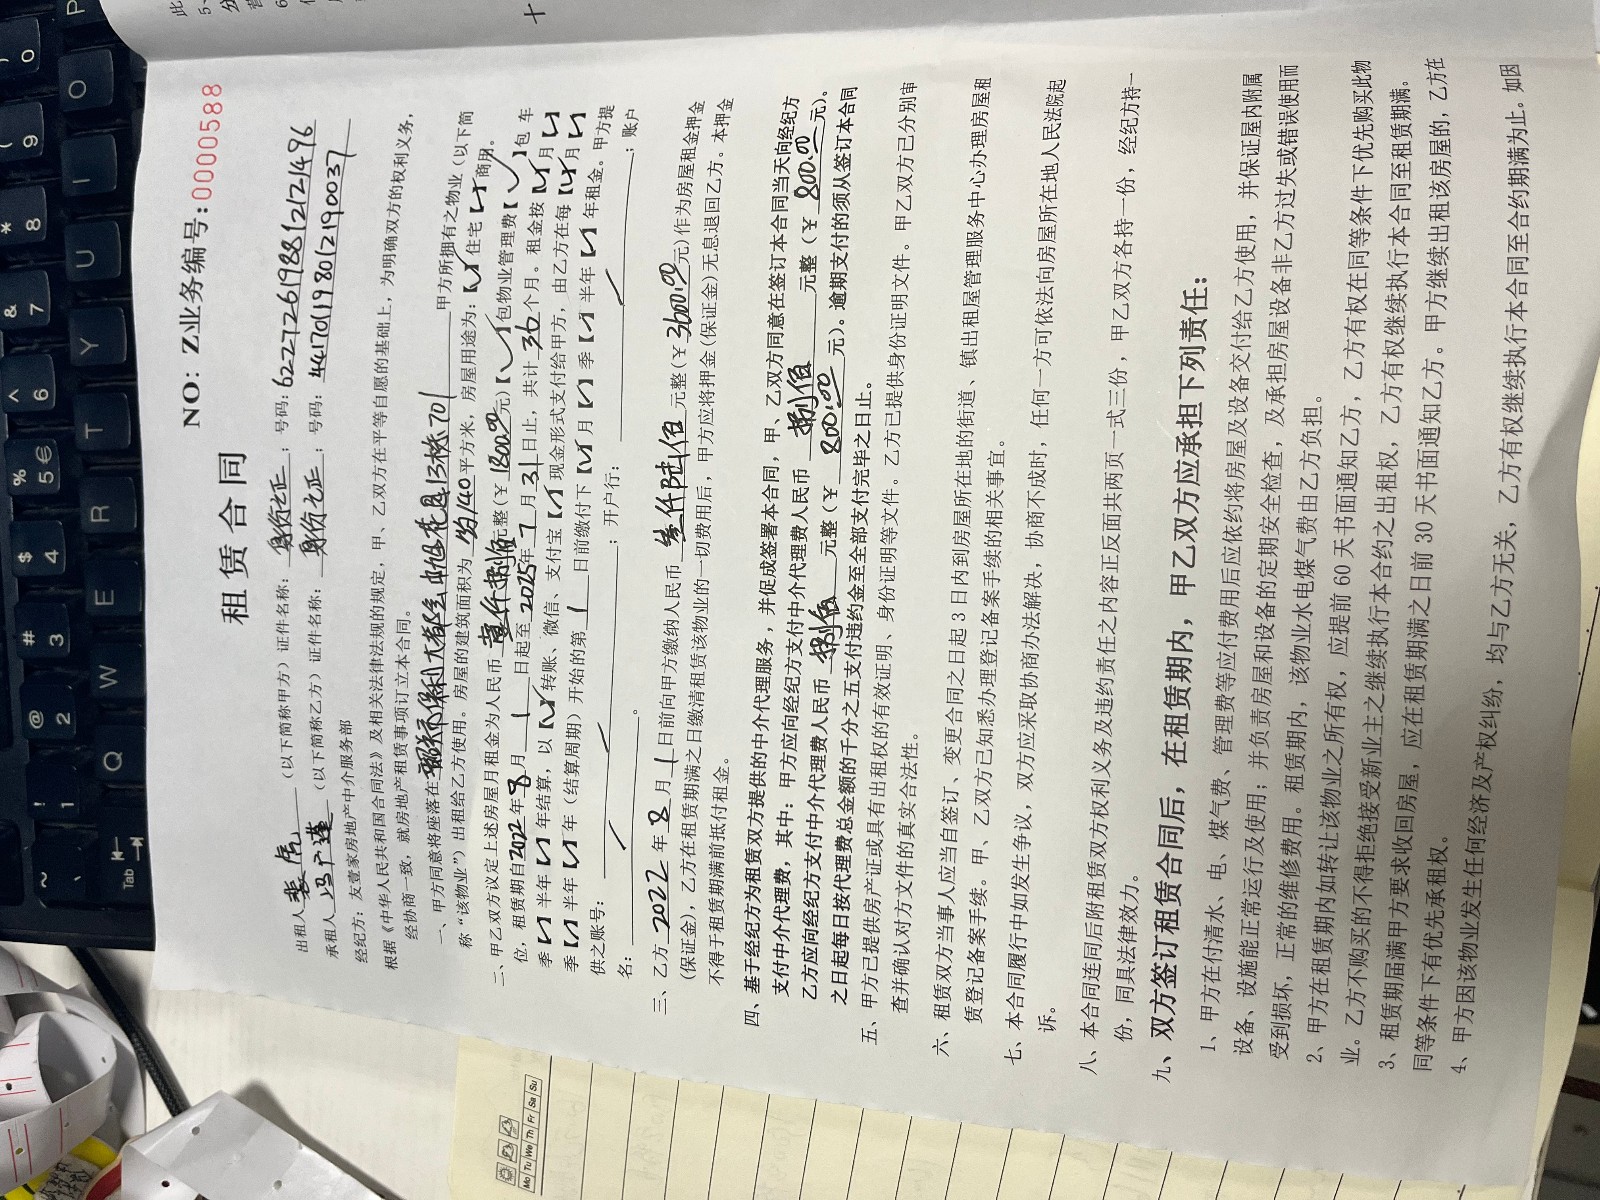 NO: Z业务编号:0000588
租赁合同
出租人 裴虎 (以下简称甲方)证件名称: 身份证 ;号码: 622726198812121496
承租人 冯广谨 (以下简称乙方)证件名称: 身份证 ;号码: 441701198012190037
经纪方:友壹家房地产中介服务部
根据《中华人民共和国合同法》及相关法律法规的规定,甲、乙双方在平等自愿的基础上,为明确双方的权利义务,
经协商一致,就房地产租赁事项订立本合同。
一、甲方同意将座落在 保利大都会 花园13栋701 甲方所拥有之物业(以下简
称“该物业”)出租给乙方使用。房屋的建筑面积为 约140 平方米,房屋用途为:【✓】住宅【 】商用。
二、甲乙双方议定上述房屋月租金为人民币 壹仟捌佰 元整(¥ 1800.00 元)【✓】包物业管理费【✓】包车
位,租赁期自2022年 8 月 1 日起至2025年 7 月 31 日止,共计 36 个月。租金按【✓】月【 】
季【 】半年【 】年结算,以【✓】转账、微信、支付宝【 】现金形式支付给甲方,由乙方在每【✓】月【 】
季【 】半年【 】年(结算周期)开始的第 1 日前缴付下【✓】月【 】季【 】半年【 】年租金。甲方提
供之账号: ;开户行: ;账户
名: 。
三、乙方 2022 年 8 月 1 日前向甲方缴纳人民币 叁仟陆佰 元整(¥ 3600.00 元)作为房屋租金押金
(保证金),乙方在租赁期满之日缴清租赁该物业的一切费用后,甲方应将押金(保证金)无息退回乙方。本押金
不得于租赁期满前抵付租金。
四、基于经纪方为租赁双方提供的中介代理服务,并促成签署本合同,甲、乙双方同意在签订本合同当天向经纪方
支付中介代理费,其中:甲方应向经纪方支付中介代理费人民币 捌佰 元整(¥ 800.00 元)。
乙方应向经纪方支付中介代理费人民币 捌佰 元整(¥ 800.00 元)。逾期支付的须从签订本合同
之日起每日按代理费总金额的千分之五支付违约金至全部支付完毕之日止。
五、甲方已提供房产证或具有出租权的有效证明、身份证明等文件。乙方已提供身份证明文件。甲乙双方已分别审
查并确认对方文件的真实合法性。
六、租赁双方当事人应当自签订、变更合同之日起3日内到房屋所在地的街道、镇出租屋管理服务中心办理房屋租
赁登记备案手续。甲、乙双方已知悉办理登记备案手续的相关事宜。
七、本合同履行中如发生争议,双方应采取协商办法解决,协商不成时,任何一方可依法向房屋所在地人民法院起
诉。
八、本合同连同后附租赁双方权利义务及违约责任之内容正反面共两页一式三份,甲乙双方各持一份,经纪方持一
份,同具法律效力。
九、双方签订租赁合同后,在租赁期内,甲乙双方应承担下列责任:
1、甲方在付清水、电、煤气费、管理费等应付费用后应依约将房屋及设备交付给乙方使用,并保证屋内附属
设备、设施能正常运行及使用;并负责房屋和设备的定期安全检查,及承担房屋设备非乙方过失或错误使用而
受到损坏,正常的维修费用。租赁期内,该物业水电煤气费由乙方负担。
2、甲方在租赁期内如转让该物业之所有权,应提前60天书面通知乙方,乙方有权在同等条件下优先购买此物
业。乙方不购买的不得拒绝接受新业主之继续执行本合约之出租权,乙方有权继续执行本合同至租赁期满。
3、租赁期届满甲方要求收回房屋,应在租赁期满之日前30天书面通知乙方。甲方继续出租该房屋的,乙方在
同等条件下有优先承租权。
4、甲方因该物业发生任何经济及产权纠纷,均与乙方无关,乙方有权继续执行本合同至合约期满为止。如因
Mo Tu We Th Fr Sa Su
Tab
Q W E R T Y U I O P